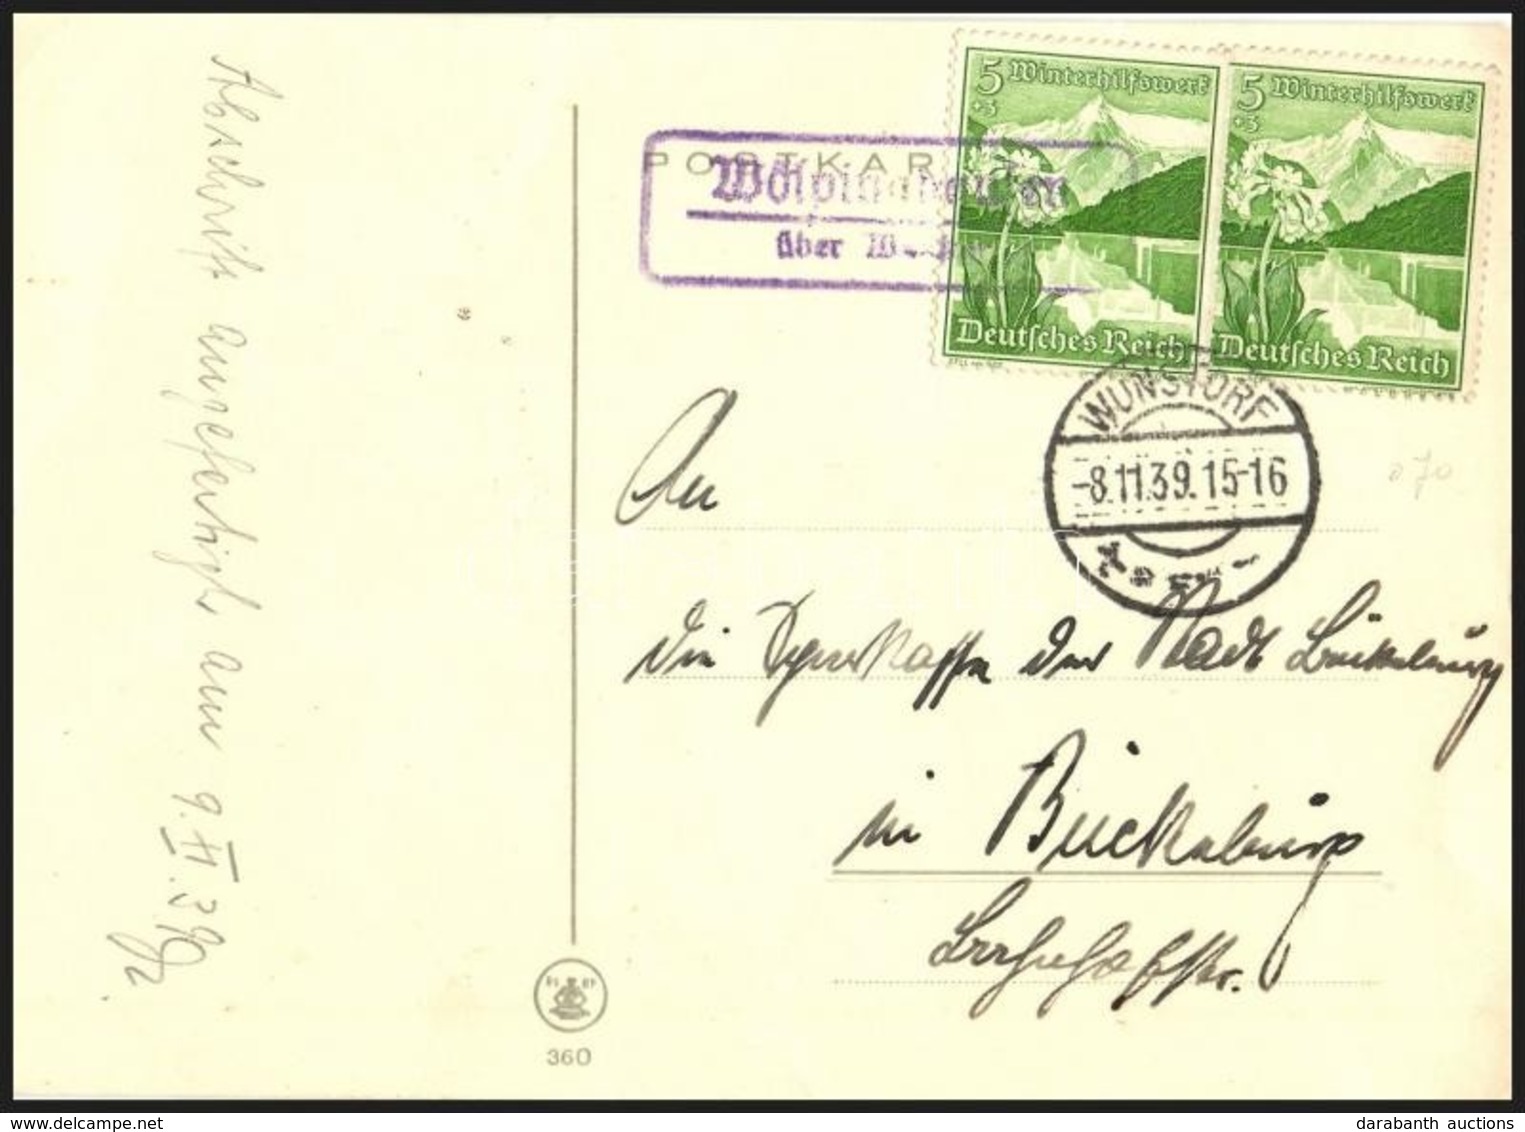 Abschrift angefertigt am 9.XI.39
POSTKAR
Wölpinghausen
über Wunstorf
5 Winterhilfswerk
+3
Deutsches Reich
5 Winterhilfswerk
+3
Deutsches Reich
WUNSTORF
-8.11.39.15-16
An
die Sparkasse der Stadt Bückeburg
in Bückeburg
Bahnhofstr.
360
darabanth auctions
www.delcampe.net